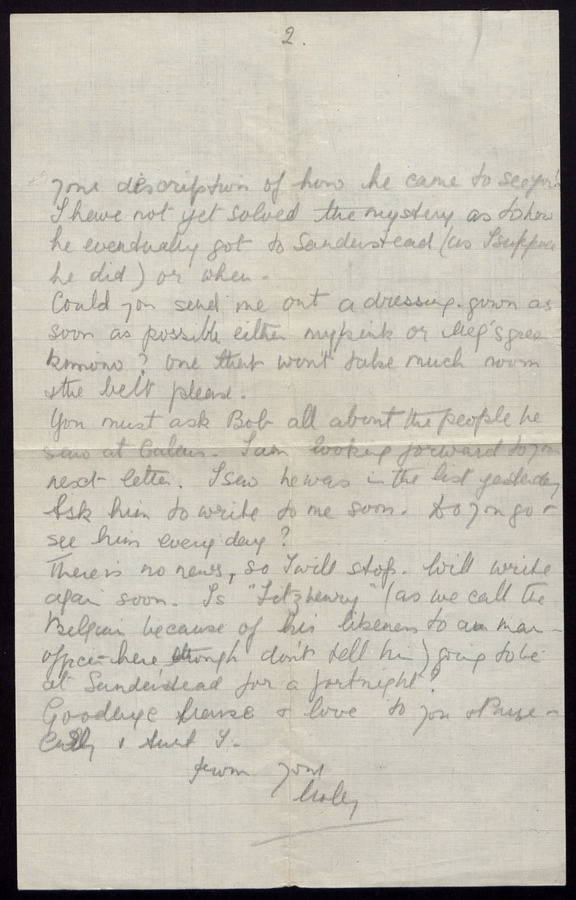 2.
your description of how he came to see you!
I have not yet solved the mystery as to how
he eventually got to Sanderstead (as I suppose
he did) or when.
Could you send me out a dressing-gown as
soon as possible either my pink or Meg's green
kimono? One that won't take much room
& the belt please.
You must ask Bob all about the people he
saw at Calais. I am looking forward to your
next letter. I saw he was in the list yesterday
Ask him to write to me soon. Do you go &
see him every day?
There is no news, so I will stop. Will write
again soon. Is "Fitzhenry" (as we call the
Belgian because of his likeness to a man -
officer here though don't tell him) going to be
at Sanderstead for a fortnight?
Goodbye & love to you &
& Aunt
from your